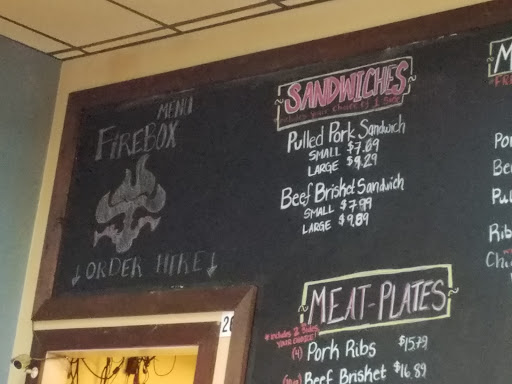 MENU
FIREBOX
↓ORDER HERE↓
SANDWICHES
Includes Your Choice of 1 Side
Pulled Pork Sandwich
SMALL $7.69
LARGE $9.29
Beef Brisket Sandwich
SMALL $7.99
LARGE $9.89
~MEAT-PLATES~
*includes 2 Sides
YOUR CHOICE!
(4) Pork Ribs $15.79
Beef Brisket $16.89
M
FR
Po
Bee
Pul
Rib
Chi